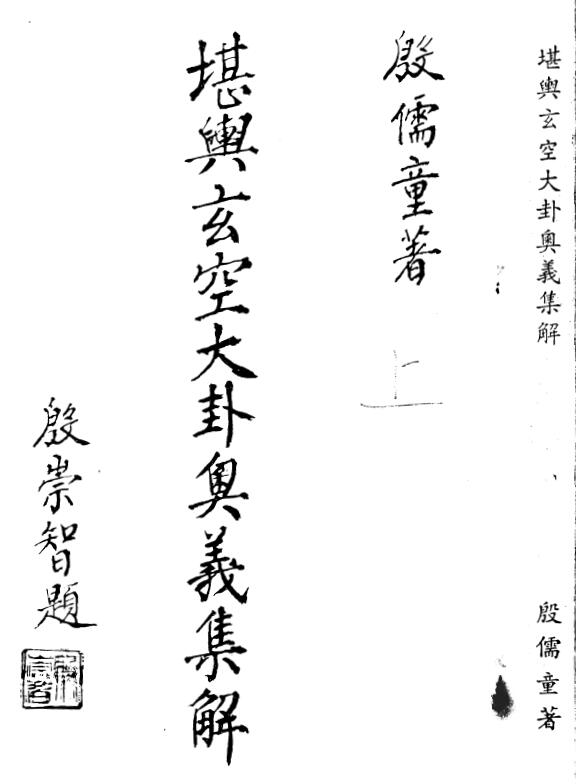 堪輿玄空大卦奧義集解
殷儒童著
殷儒童著
上
堪輿玄空大卦奧義集解
殷崇智題